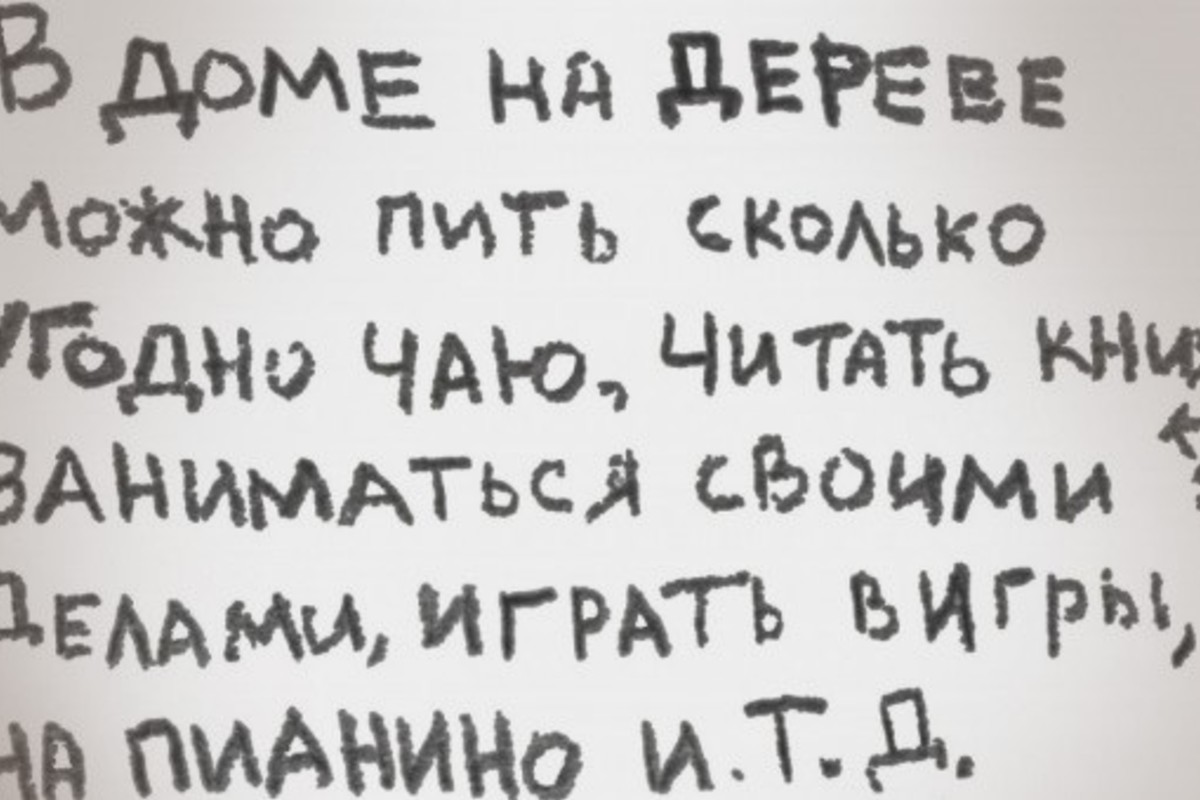 В ДОМЕ НА ДЕРЕВЕ
МОЖНО ПИТЬ СКОЛЬКО
УГОДНО ЧАЮ, ЧИТАТЬ
ЗАНИМАТЬСЯ СВОИМИ
ДЕЛАМИ, ИГРАТЬ В ИГРЫ,
НА ПИАНИНО И.Т.Д.